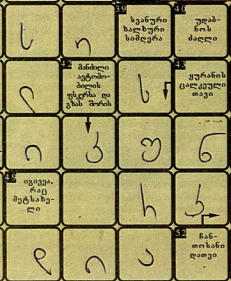 სვანური
ხალხური
სიმღერა
უდაბ-
ნოს
ძაღლი
ს ი
მანძილი
ავტომო-
ბილის
ფსკერსა და
გზას შორის
ყურანის
ცალკეული
თავი
ლ ს
ი პ უ ნ
იგივეა,
რაც
მეტსახე-
ლი
ს
ჩან-
თოსანი
დათვი
ლ ი ა